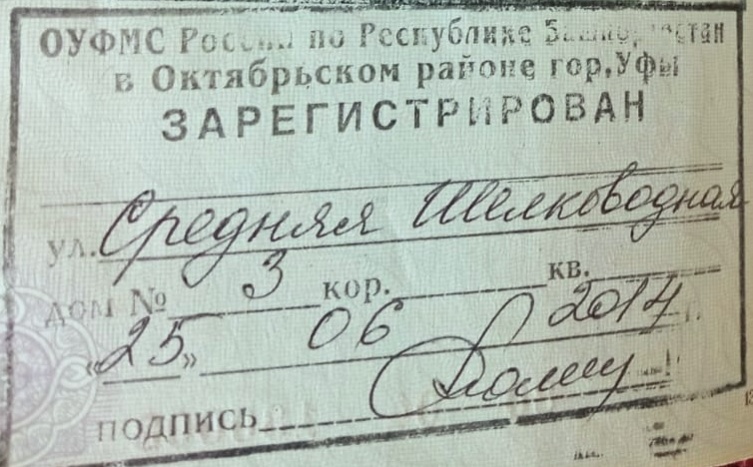 ОУФМС России по Республике Башкортостан
в Октябрьском районе гор.Уфы
ЗАРЕГИСТРИРОВАН
ул. Средняя Шелководная
дом № 3 кор. кв.
«25» 06 2014 г.
подпись